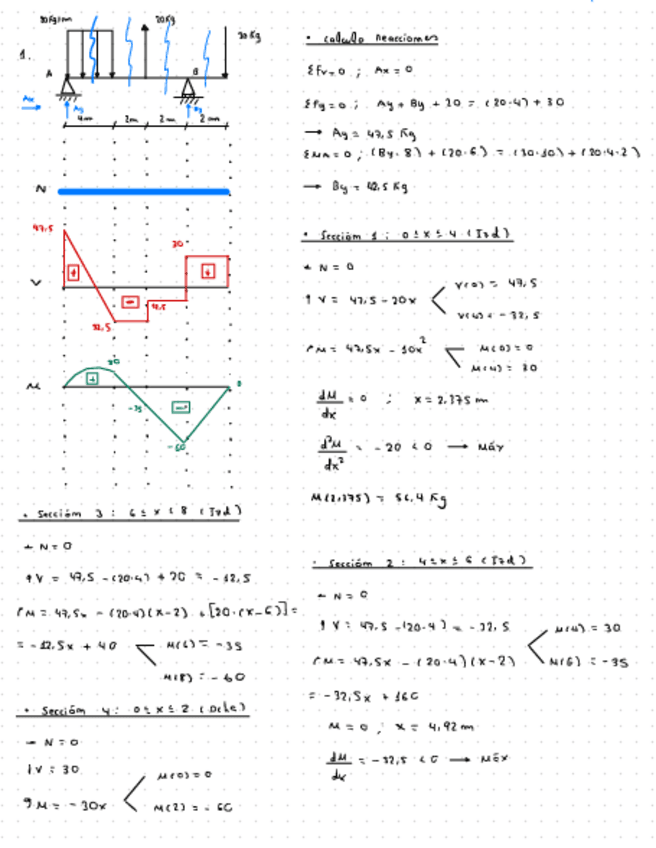 1.
20 Kg/m
20 Kg
30 Kg
A
B
Ax
Ay
By
4m
2m
2m
2m
N
47,5
30
V
+
-
+
32,5
12,5
M
30
+
-35
-
0
-60
• Calculo reacciones
ΣFx=0 ; Ax = 0
ΣFy=0 ; Ay + By + 20 = (20·4) + 30
→ Ay = 47,5 Kg
ΣMA=0 ; (By·8) + (20·6) = (30·10) + (20·4·2)
→ By = 42,5 Kg
• Sección 1 : 0≤x≤4 (Izd)
→ N = 0
↑ V = 47,5 - 20x
V(0) = 47,5
V(4) = -32,5
M = 47,5x - 10x²
M(0) = 0
M(4) = 30
dM/dx = 0 ; x = 2,375 m
d²M/dx² = -20 < 0 → Máx
M(2,375) = 56,4 Kg
• Sección 2 : 4≤x≤6 (Izd)
→ N = 0
↑ V = 47,5 - (20·4) = -32,5
M = 47,5x - (20·4)(x-2)
M(4) = 30
M(6) = -35
= -32,5x + 160
M = 0 ; x = 4,92 m
dM/dx = -32,5 < 0 → Máx
• Sección 3 : 6≤x≤8 (Izd)
→ N = 0
↑ V = 47,5 - (20·4) + 20 = -12,5
M = 47,5x - (20·4)(x-2) + [20·(x-6)] =
= -12,5x + 40
M(6) = -35
M(8) = -60
• Sección 4 : 0≤x≤2 (Dcha)
← N = 0
↓ V = 30
M = -30x
M(0) = 0
M(2) = -60